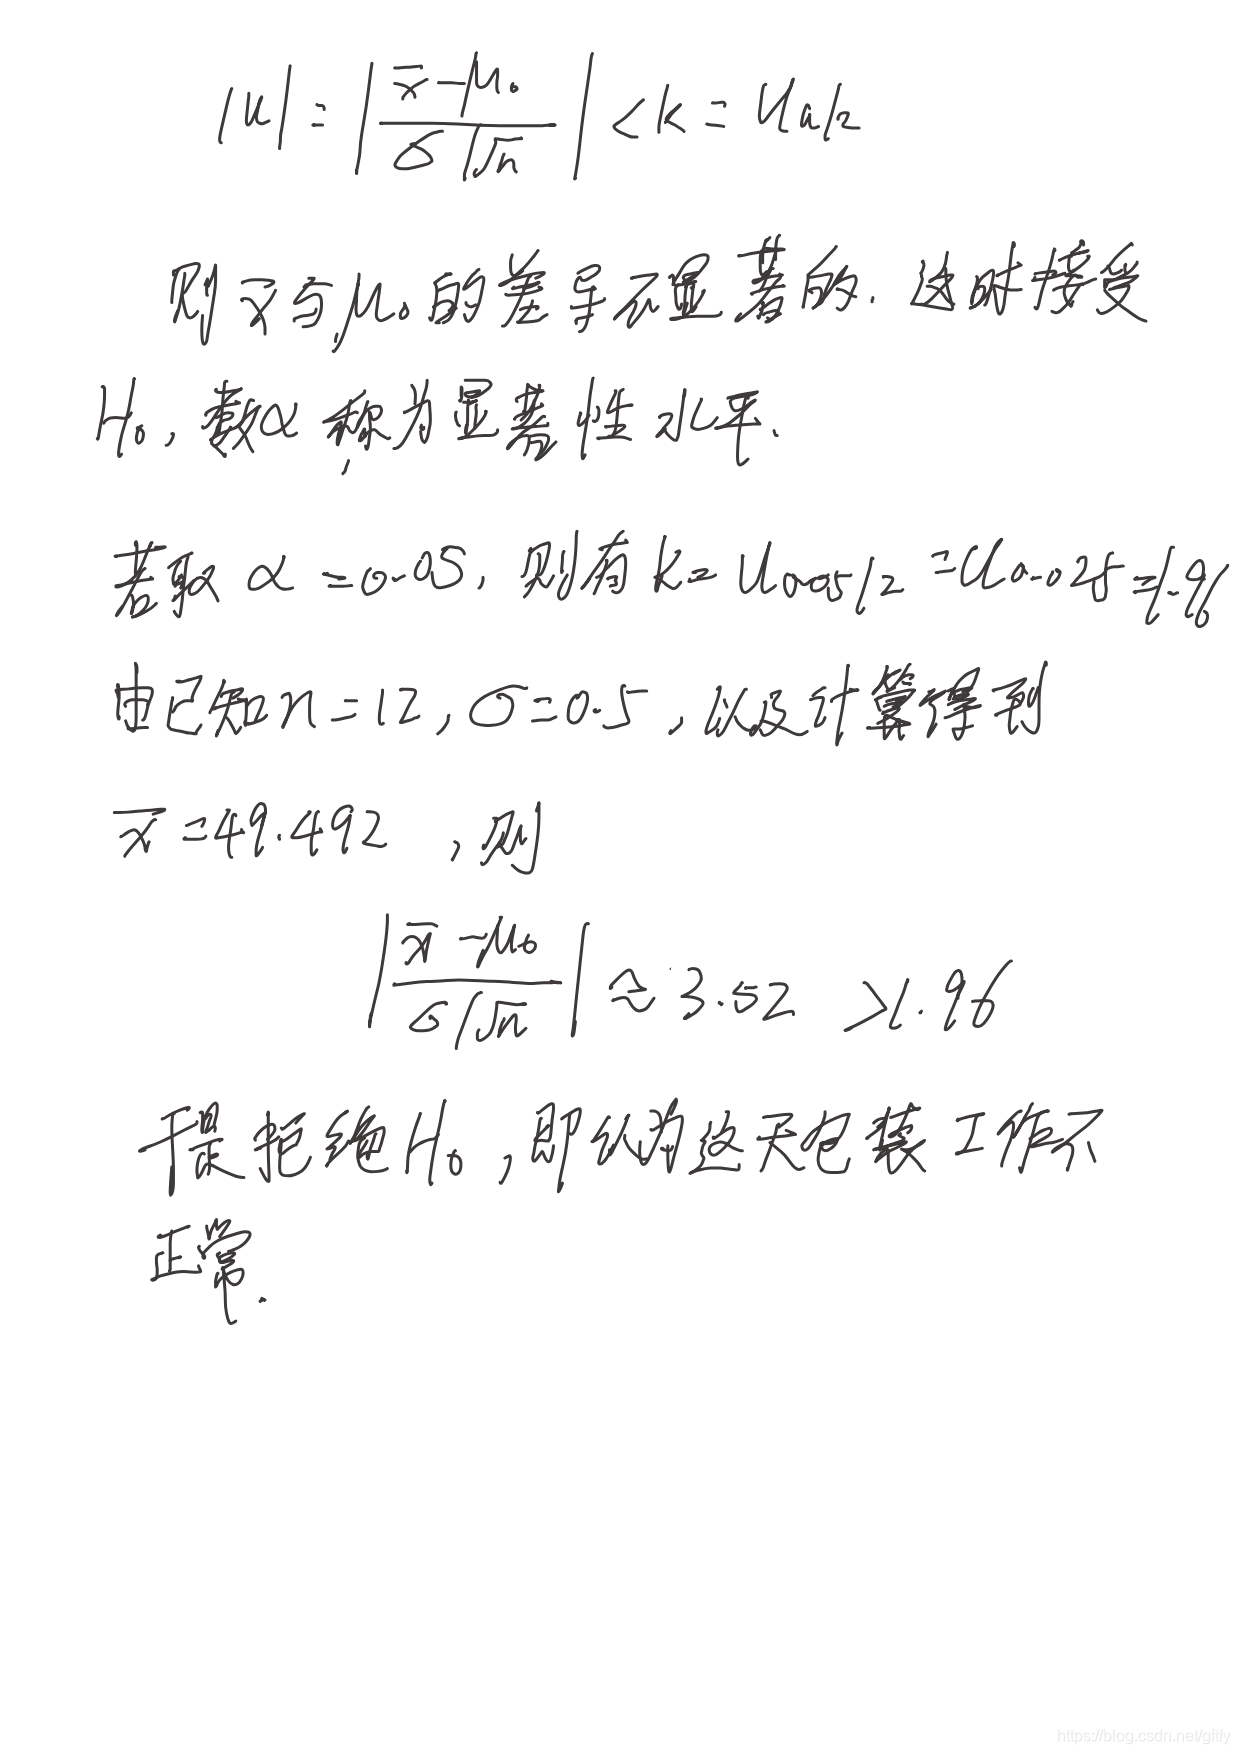 |u| = |(x̄ - μ₀)/(σ/√n)| < k = u_{α/2}
则 x̄ 与 μ₀ 的差异不显著的. 这时接受
H₀, 数α 称为显著性水平.
若取 α = 0.05, 则有 k = u_{0.05/2} = u_{0.025} = 1.96
由已知 n = 12, σ = 0.5, 以及计算得到
x̄ = 49.492 , 则
|(x̄ - μ₀)/(σ/√n)| ≈ 3.52 > 1.96
于是拒绝 H₀, 即认为这天包装工作不
正常.
https://blog.csdn.net/giftfy